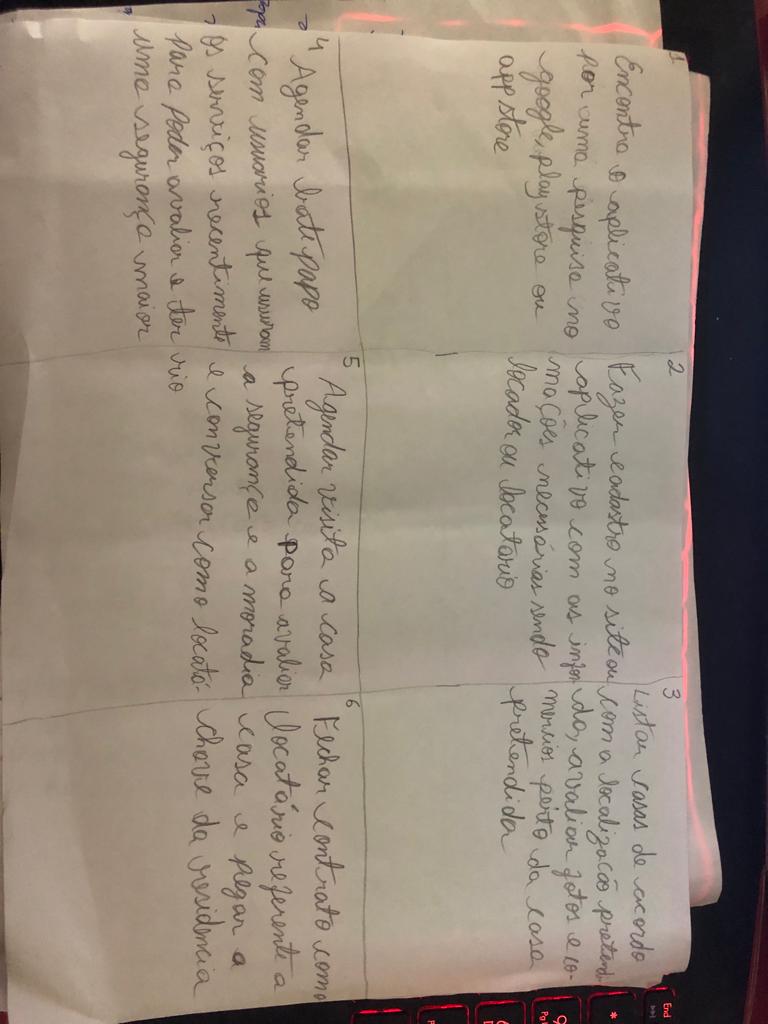 1
Encontra o aplicativo
por uma pesquisa no
google, play store ou
app store
2
Fazer cadastro no site ou
aplicativo com as infor
mações necessárias sendo
locador ou locatario
3
Listar casas de acordo
com a localização pretendi
da, avaliar fotos e co-
mercios perto da casa
pretendida
4
Agendar bate papo
com usuarios que usuram
os serviços recentimente
para poder avaliar e ter
uma segurança maior
5
Agendar visita a casa
pretendida para avaliar
a segurança e a moradia
e conversar como locatá-
rio
6
Fechar contrato como
locatário referente a
casa e pegar a
chave da residencia
End
*